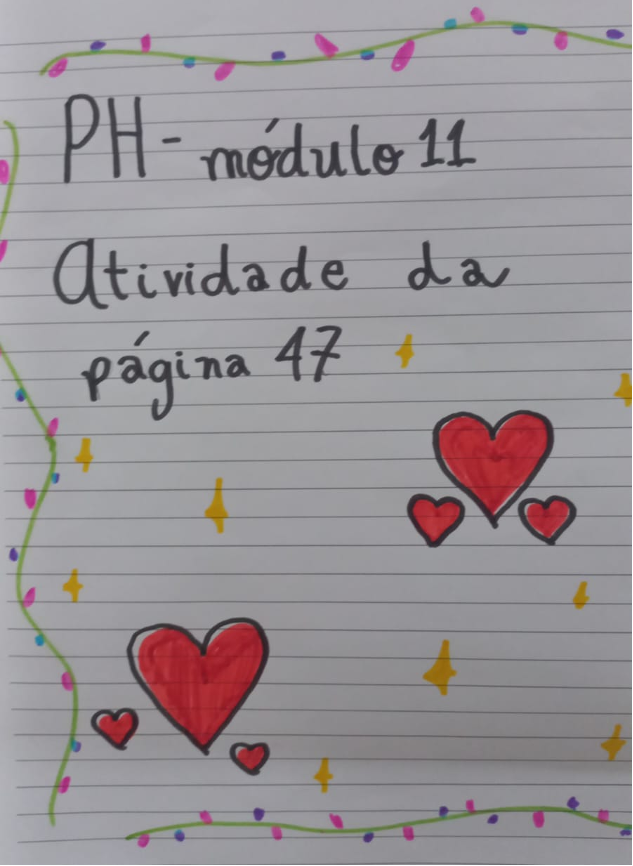 PH - módulo 11
Atividade da
página 47